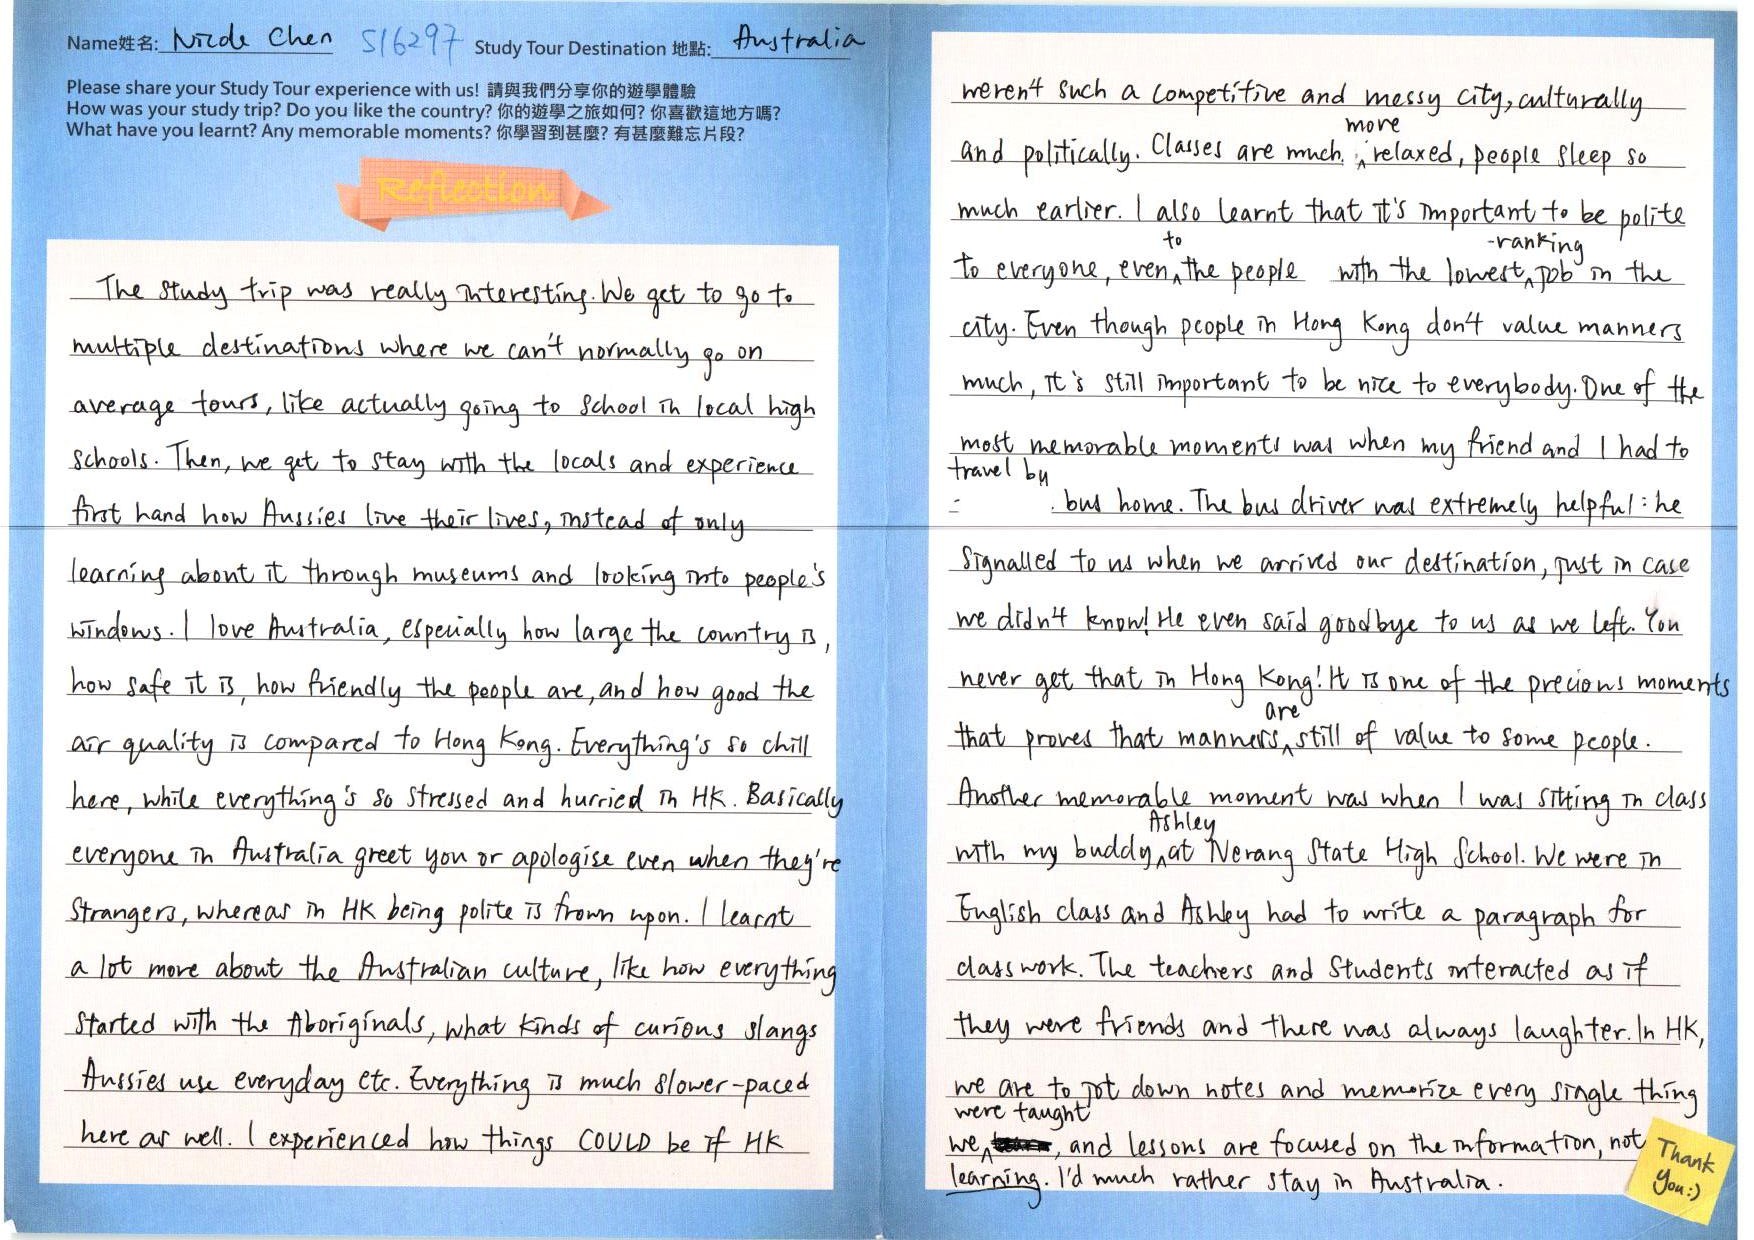 Name姓名: Nicole Chen 516297 Study Tour Destination 地點: Australia
Please share your Study Tour experience with us! 請與我們分享你的遊學體驗
How was your study trip? Do you like the country? 你的遊學之旅如何? 你喜歡這地方嗎?
What have you learnt? Any memorable moments? 你學習到甚麼? 有甚麼難忘片段?
Reflection
The study trip was really interesting. We get to go to
multiple destinations where we can't normally go on
average tours, like actually going to school in local high
schools. Then, we get to stay with the locals and experience
first hand how Aussies live their lives, instead of only
learning about it through museums and looking into people's
windows. I love Australia, especially how large the country is,
how safe it is, how friendly the people are, and how good the
air quality is compared to Hong Kong. Everything's so chill
here, while everything's so stressed and hurried in HK. Basically
everyone in Australia greet you or apologise even when they're
strangers, whereas in HK being polite is frown upon. I learnt
a lot more about the Australian culture, like how everything
started with the Aboriginals, what kinds of curious slangs
Aussies use everyday etc. Everything is much slower-paced
here as well. I experienced how things COULD be if HK
weren't such a competitive and messy city, culturally
and politically. Classes are much more relaxed, people sleep so
much earlier. I also learnt that it's important to be polite
to everyone, even to the people with the lowest-ranking job in the
city. Even though people in Hong Kong don't value manners
much, it's still important to be nice to everybody. One of the
most memorable moments was when my friend and I had to
travel by bus home. The bus driver was extremely helpful: he
signalled to us when we arrived our destination, just in case
we didn't know! He even said goodbye to us as we left. You
never get that in Hong Kong! It is one of the precious moments
that proves that manners are still of value to some people.
Another memorable moment was when I was sitting in class
with my buddy Ashley at Nerang State High School. We were in
English class and Ashley had to write a paragraph for
classwork. The teachers and students interacted as if
they were friends and there was always laughter. In HK,
we are to jot down notes and memorize every single thing
we were taught, and lessons are focused on the information, not
learning. I'd much rather stay in Australia.
Thank
you:)